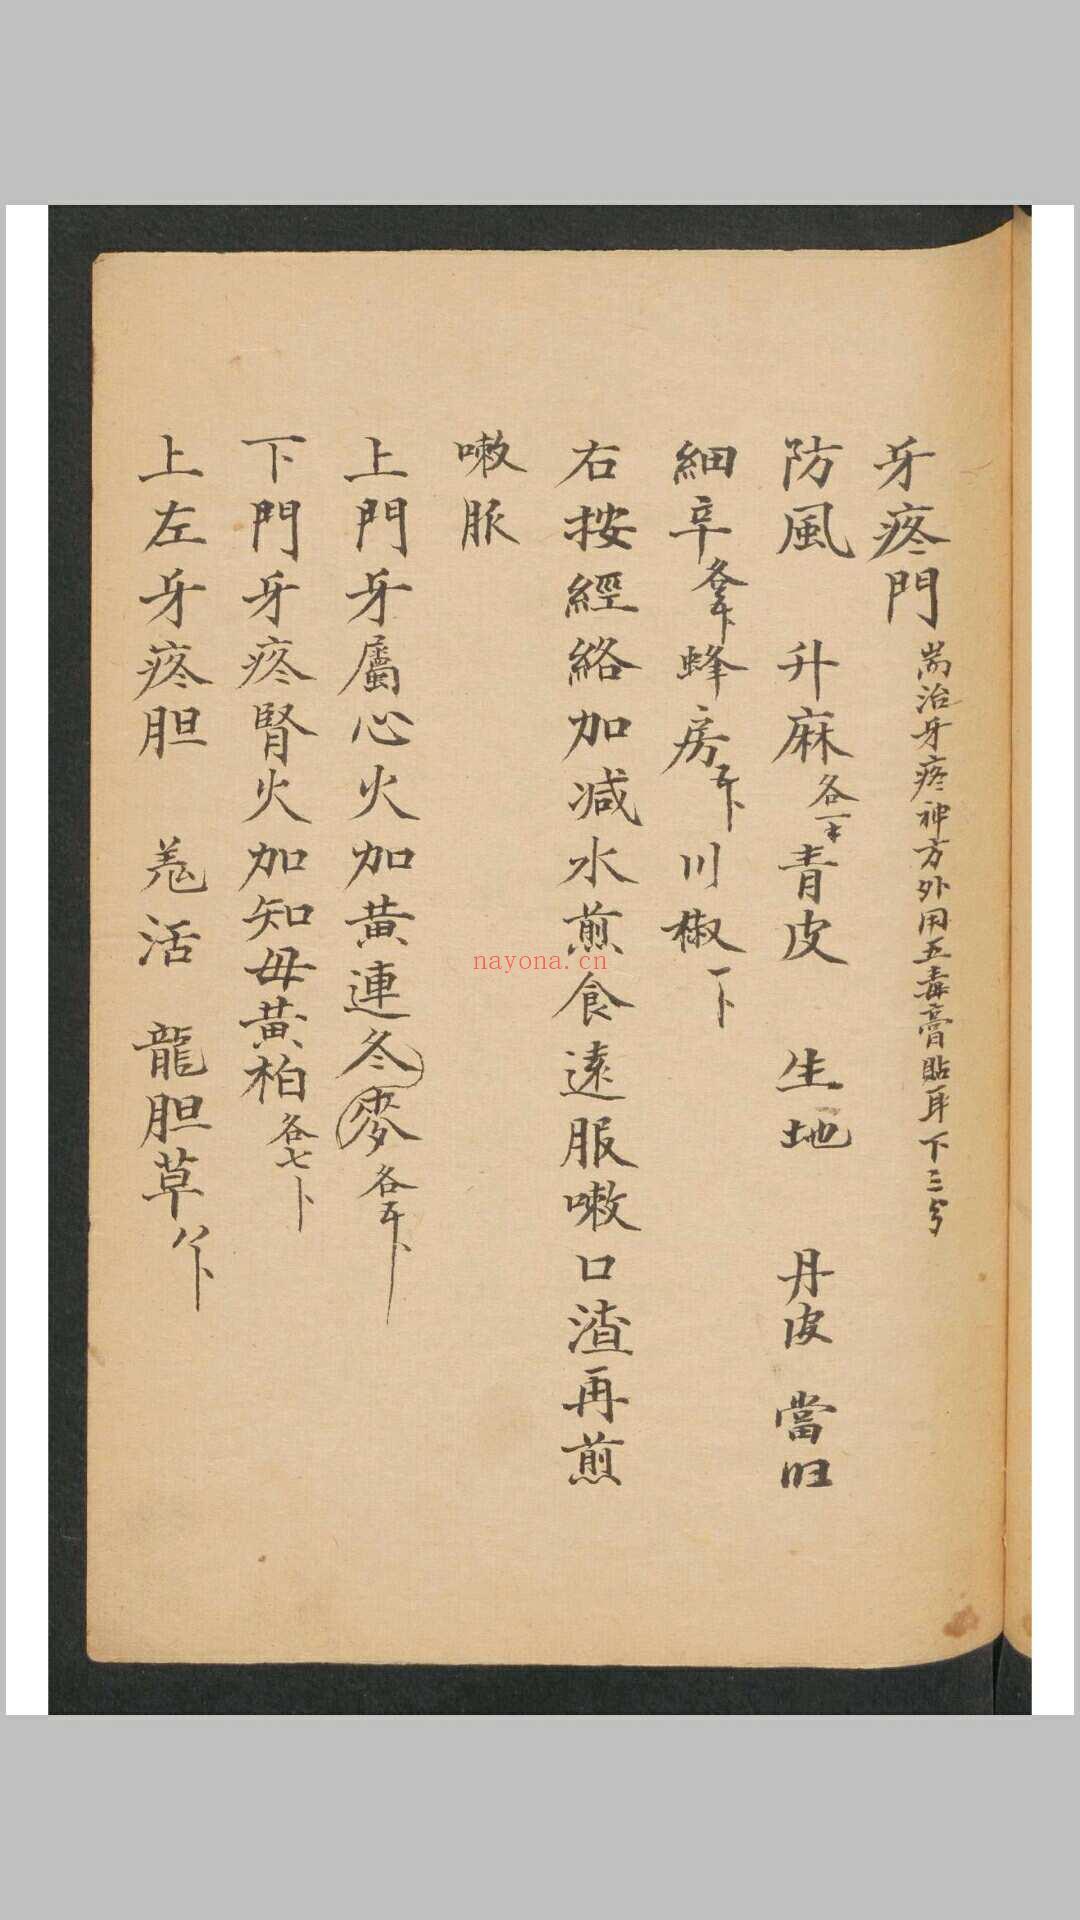 牙疼門 耑治牙疼神方外用五毒膏貼耳下三分
防風 升麻各一 青皮 生地 丹皮 當归
細辛各 蜂房 川椒一卜
右按經絡加减水煎食遠服嗽口渣再煎
嗽脈
上門牙屬心火加黄連冬麥各五卜
下門牙疼腎火加知毋黄柏各七卜
上左牙疼胆 羌活 龍胆草八卜
nayona.cn